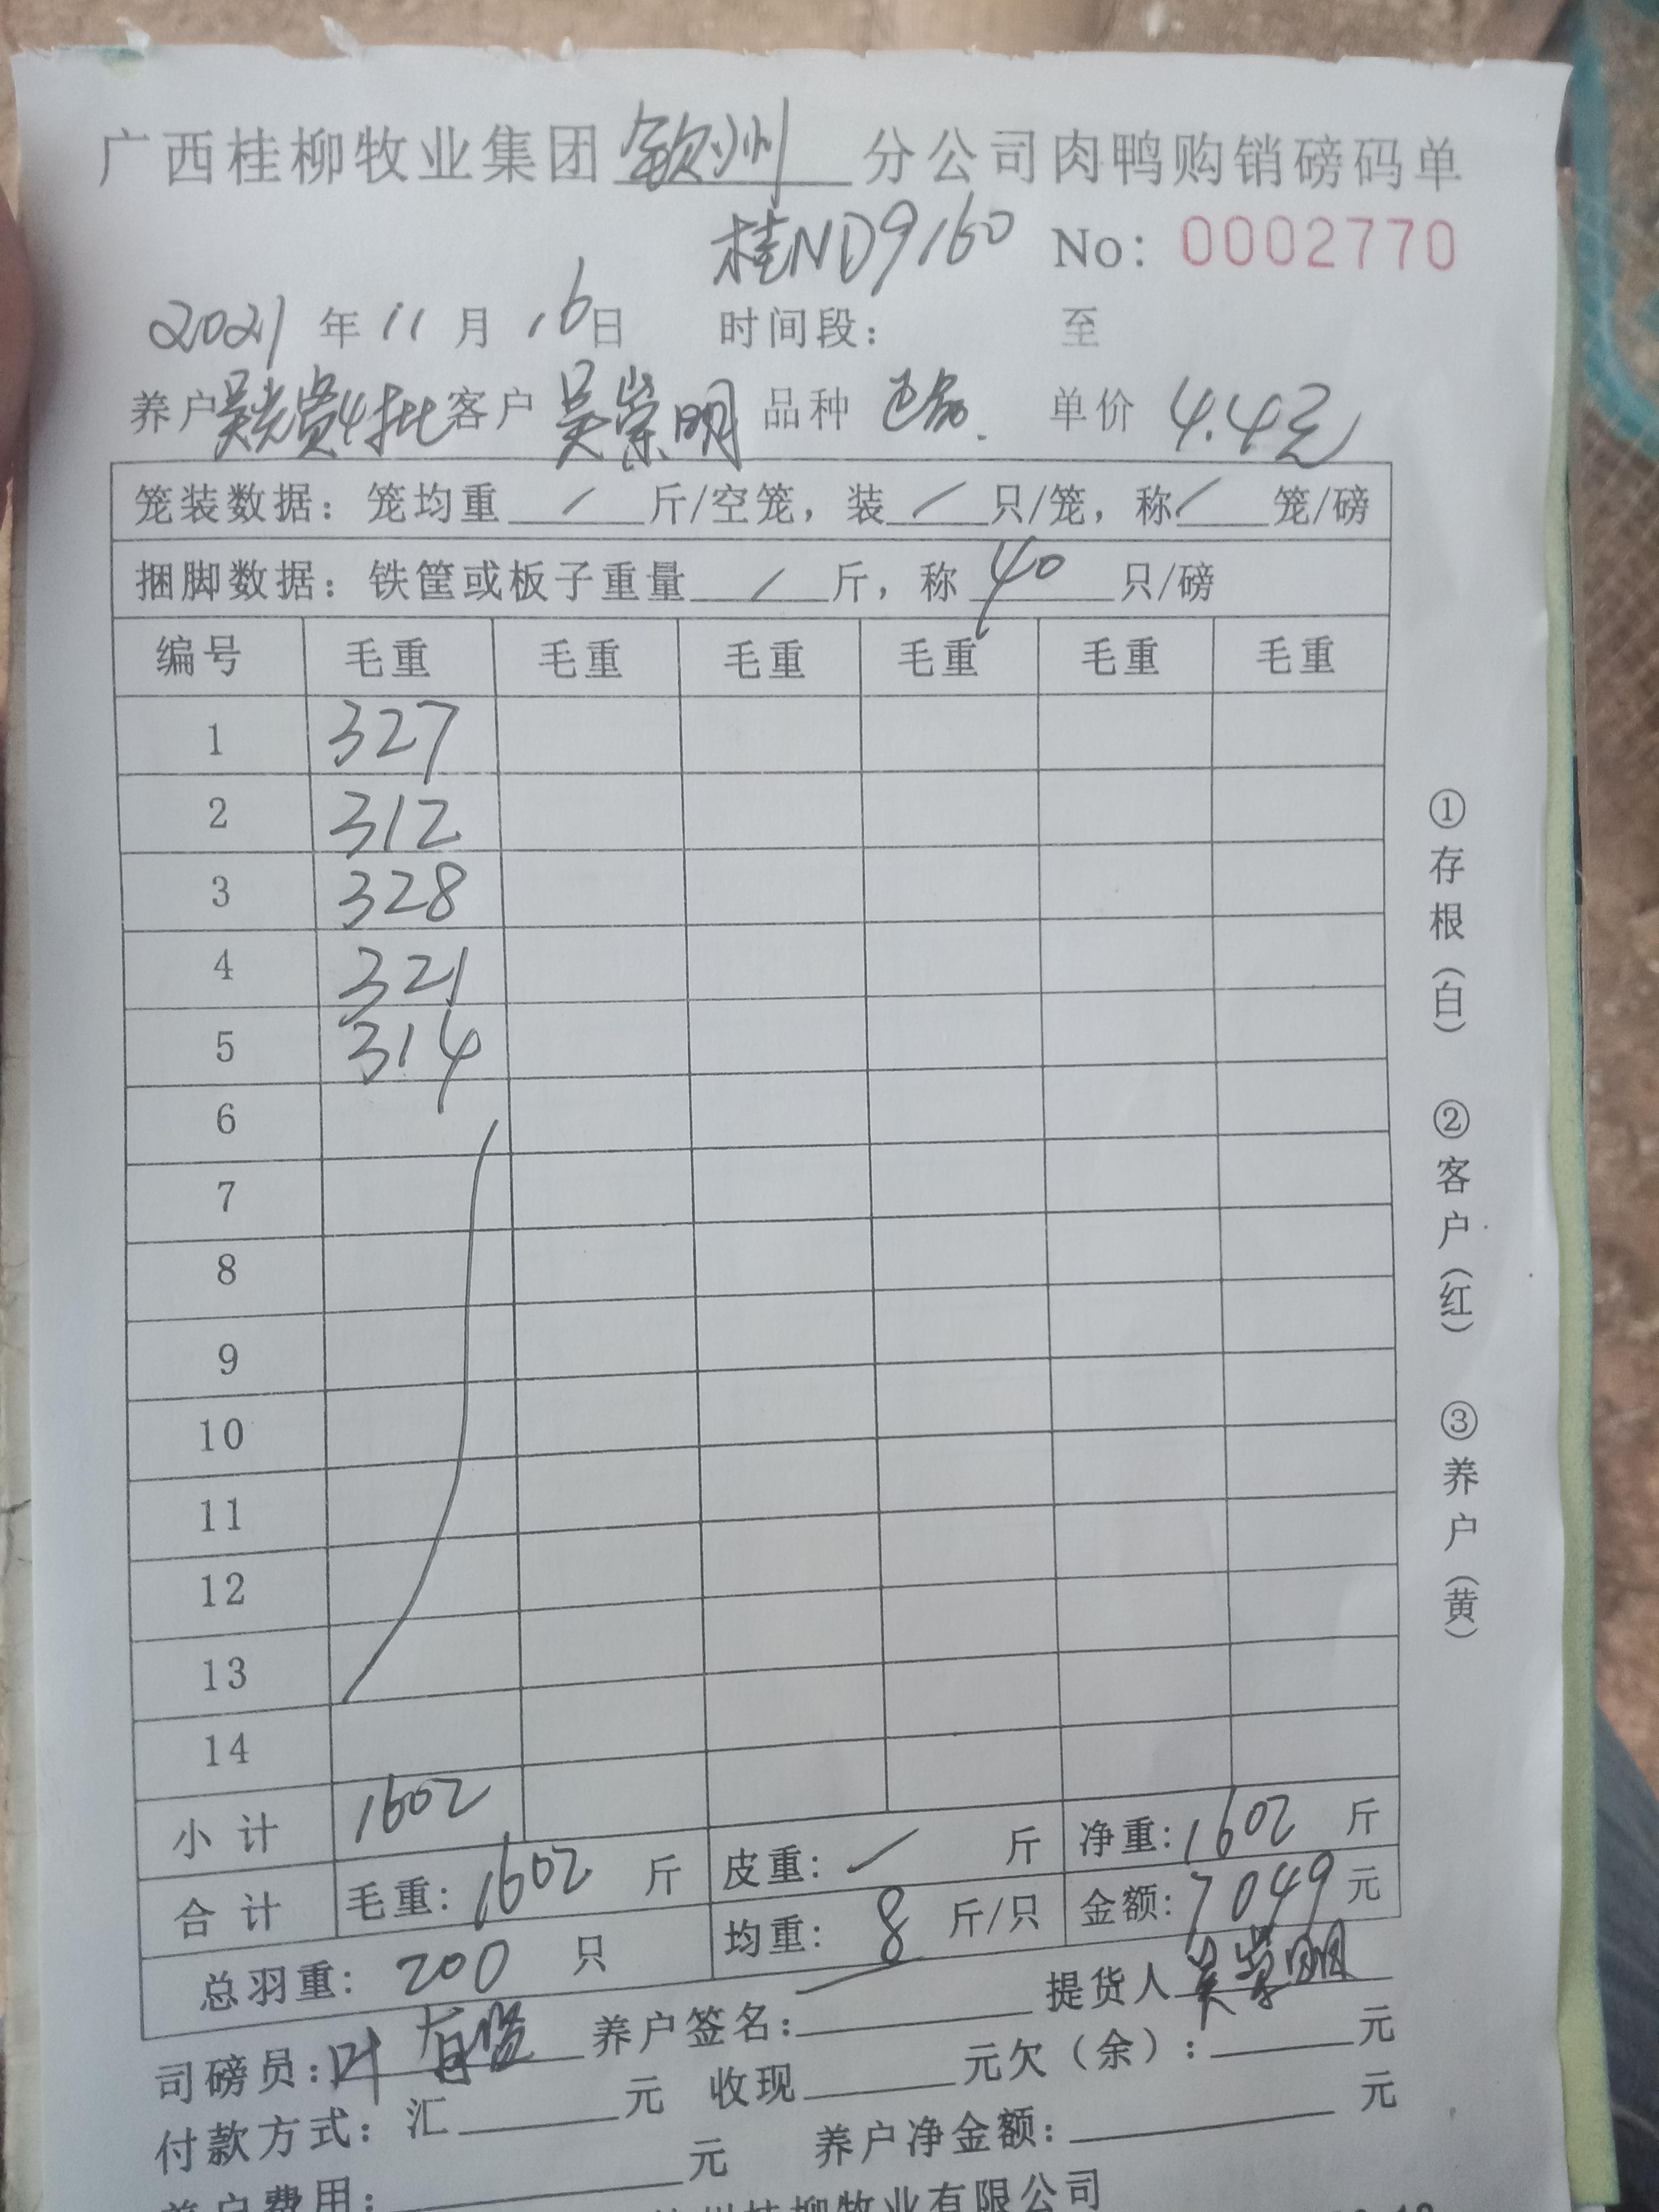 广西桂柳牧业集团 钦州 分公司肉鸭购销磅码单
桂ND9160 No: 0002770
2021 年 11 月 16 日 时间段: 至
养户 吴光贵4批 客户 吴崇明 品种 单价 4.4元
笼装数据: 笼均重 / 斤/空笼, 装 / 只/笼, 称 / 笼/磅
捆脚数据: 铁筐或板子重量 / 斤, 称 40 只/磅
编号 毛重 毛重 毛重 毛重 毛重 毛重
1 327
2 312
3 328
4 321
5 314
6
7
8
9
10
11
12
13
14
小计 1602
合计 毛重: 1602 斤 皮重: / 斤 净重: 1602 斤
总羽重: 200 只 均重: 8 斤/只 金额: 7049 元
司磅员: 叶 养户签名: 提货人 吴崇明
付款方式: 汇 元 收现 元欠(余): 元
养户费用: 元 养户净金额: 元
州桂柳牧业有限公司
①存根(白)
②客户(红)
③养户(黄)